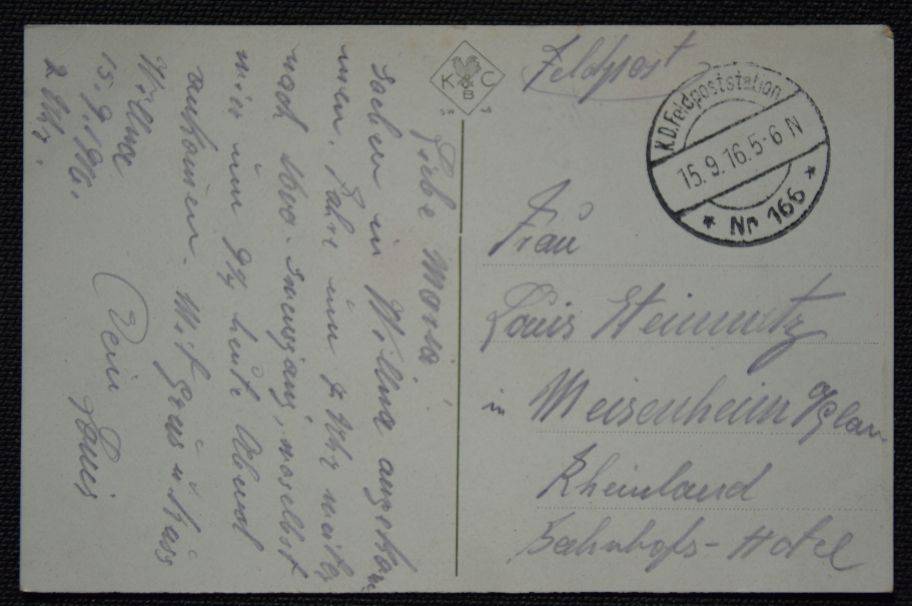 Liebe Maria
soeben in Willna angekom
men. Fahre um 4 Uhr weiter
nach Nowo-Swenzjany, woselbst
wir um 9 Uhr heute Abend
ankommen. Mit Gruss u Kuss
Dein Louis
Willna
15.9.1916.
2 Uhr.
K C
B
Feldpost
K.D.Feldpoststation
15.9.16.5-6 N
* Nr 166 *
Frau
Louis Steinmetz
in Meisenheim a/Glan
Rheinland
Bahnhofs-Hotel